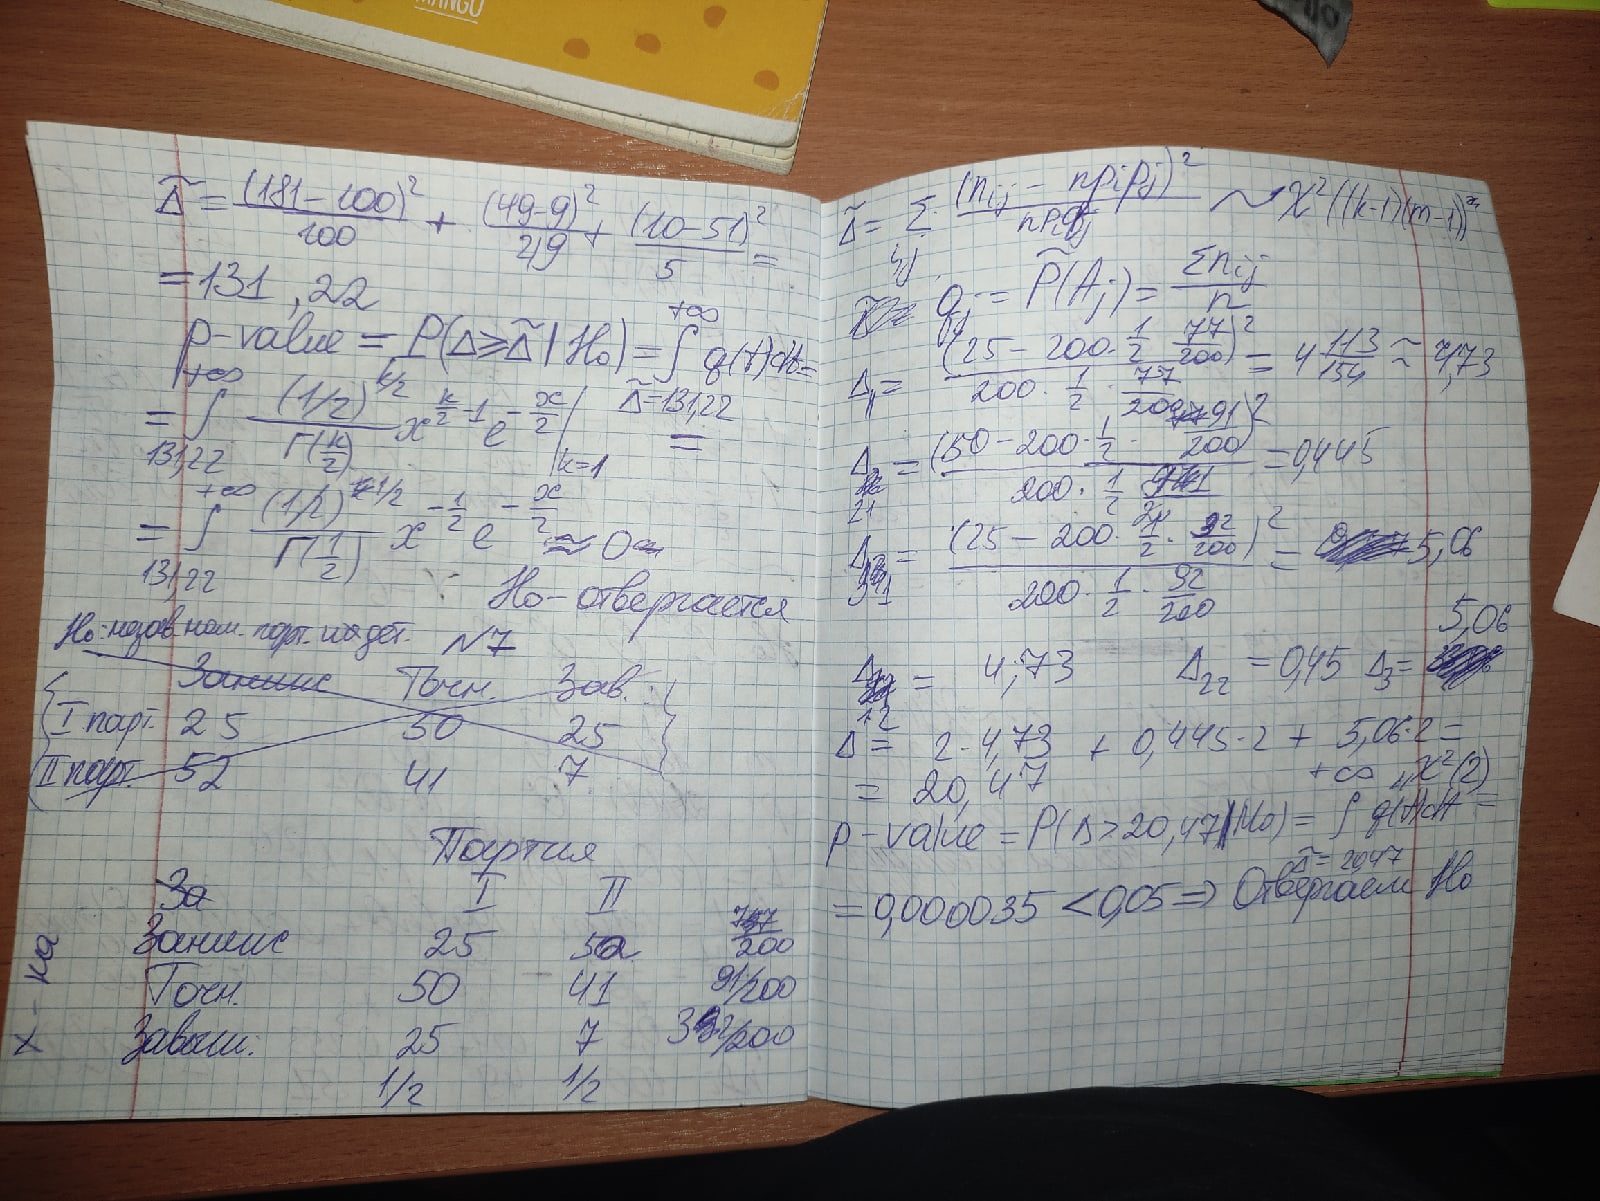 MANGO
Δ̃ = (181-100)²/100 + (49-9)²/49 + (10-51)²/5 =
= 131,22
p-value = P(Δ ⩾ Δ̃ | H₀) = ∫_{Δ̃=131,22}^{+∞} q(t)dt =
= ∫_{131,22}^{+∞} (1/2)^{k/2}/Γ(k/2) x^{k/2-1} e^{-x/2} |_{k=1} =
= ∫_{131,22}^{+∞} (1/2)^{1/2}/Γ(1/2) x^{-1/2} e^{-x/2} ≈ 0
H₀ - отвергается
H₀ -
N7
Заниис Точн. Зав.
I парт. 25 50 25
II парт. 52 41 7
Партия
За I II
Заниис 25 52 77/200
Точн. 50 41 91/200
Завыш. 25 7 32/200
1/2 1/2
х-ка
Δ̃ = Σ_{ij} (n_{ij} - np_ip_j)²/np_iq_j ~ χ²((k-1)(m-1))
q_j = P̃(A_j) = Σn_{ij}/n
Δ₁₁ = (25 - 200·1/2·77/200)²/(200·1/2·77/200) = 4 113/154 ≈ 4,73
Δ₂₁ = (50 - 200·1/2·91/200)²/(200·1/2·91) = 0,445
Δ₃₁ = (25 - 200·1/2·32/200)²/(200·1/2·32/200) = 5,06
5,06
Δ₁₂ = 4,73 Δ₂₂ = 0,45 Δ₃ =
Δ = 2·4,73 + 0,445·2 + 5,06·2 =
= 20,47
p-value = P(Δ > 20,47 | H₀) = ∫_{Δ̃=20,47}^{+∞} q(t)dt = χ²(2)
= 0,000035 < 0,05 ⇒ Отвергаем H₀